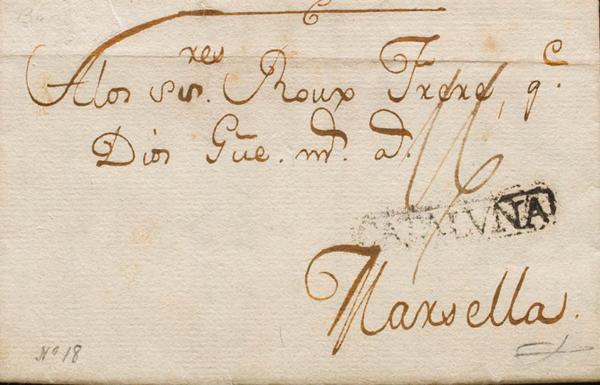 Alos Sres. Roux Frere, q.e
Dios Gūe. ms. as.
CATALVÑA
Marsella.
Nº 18